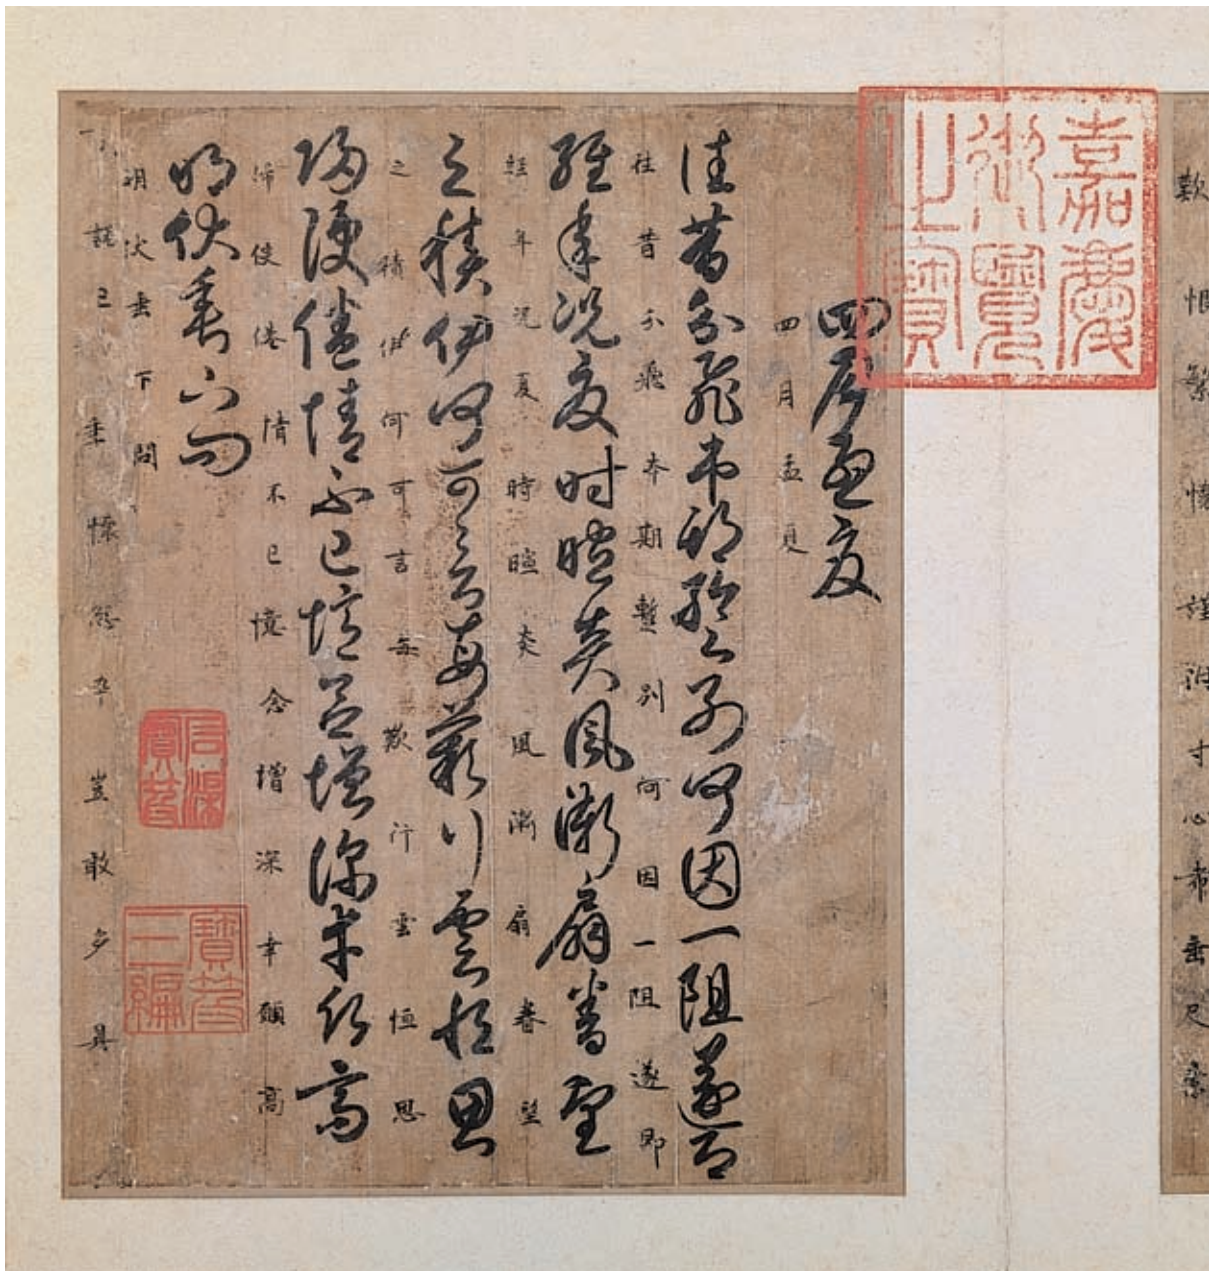 歎恨繁懷謹寸心希垂尺素
嘉慶
御覽
之寶
四月孟夏
四月孟夏
往昔分飛本期暫別何因一阻遂即
往昔分飛本期暫別何因一阻遂即
經年況夏時暄炎風漸扇眷望
經年況夏時暄炎風漸扇眷望
之積伊何可言每歎行雲恒思
之積伊何可言每歎行雲恒思
歸使倦情不已憶念增深幸願高
歸使倦情不已憶念增深幸願高
明伏垂下問
明伏垂下問
諾已垂懷豈敢多具
石渠
寶笈
寶笈
三編